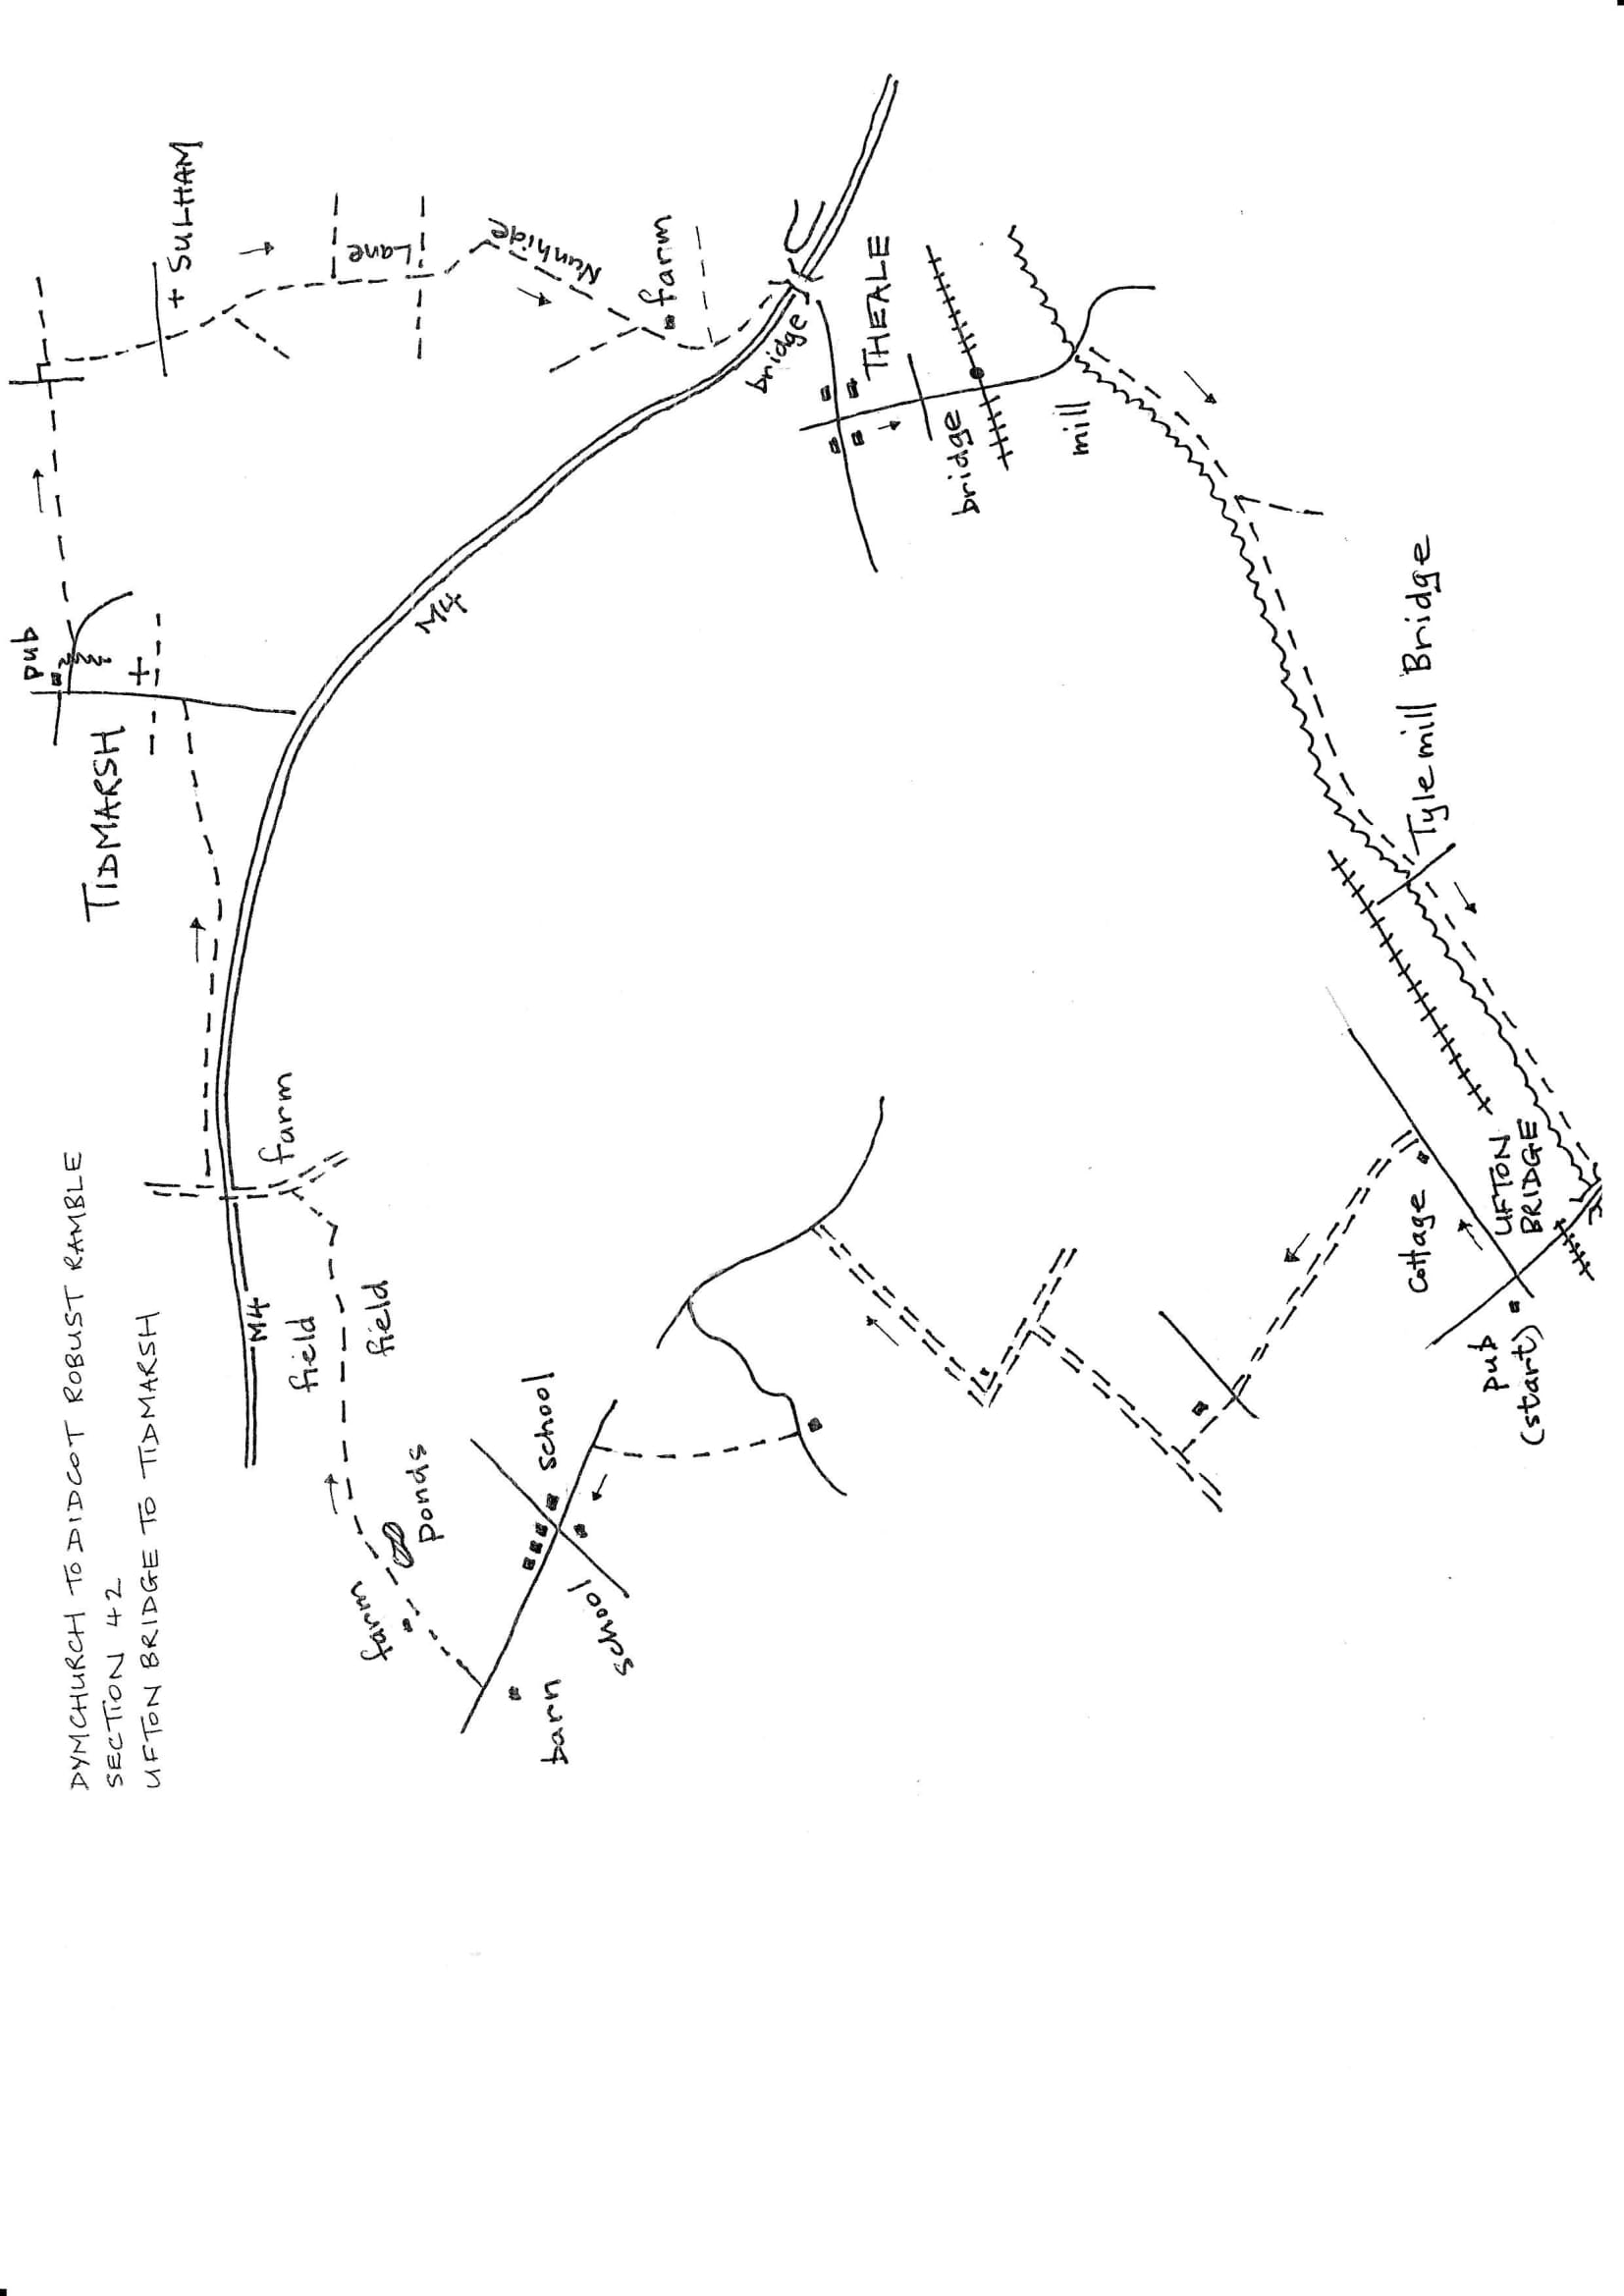 DYMCHURCH TO DIDCOT ROBUST RAMBLE
SECTION 42
UFTON BRIDGE TO TIDMARSH
pub
TIDMARSH
SULHAM
M4
farm
field
farm
field
Ponds
Lane
M4
Nunhide
barn
school
school
farm
bridge
THEALE
bridge
mill
Cottage
Tylemill Bridge
pub
(start)
UFTON
BRIDGE